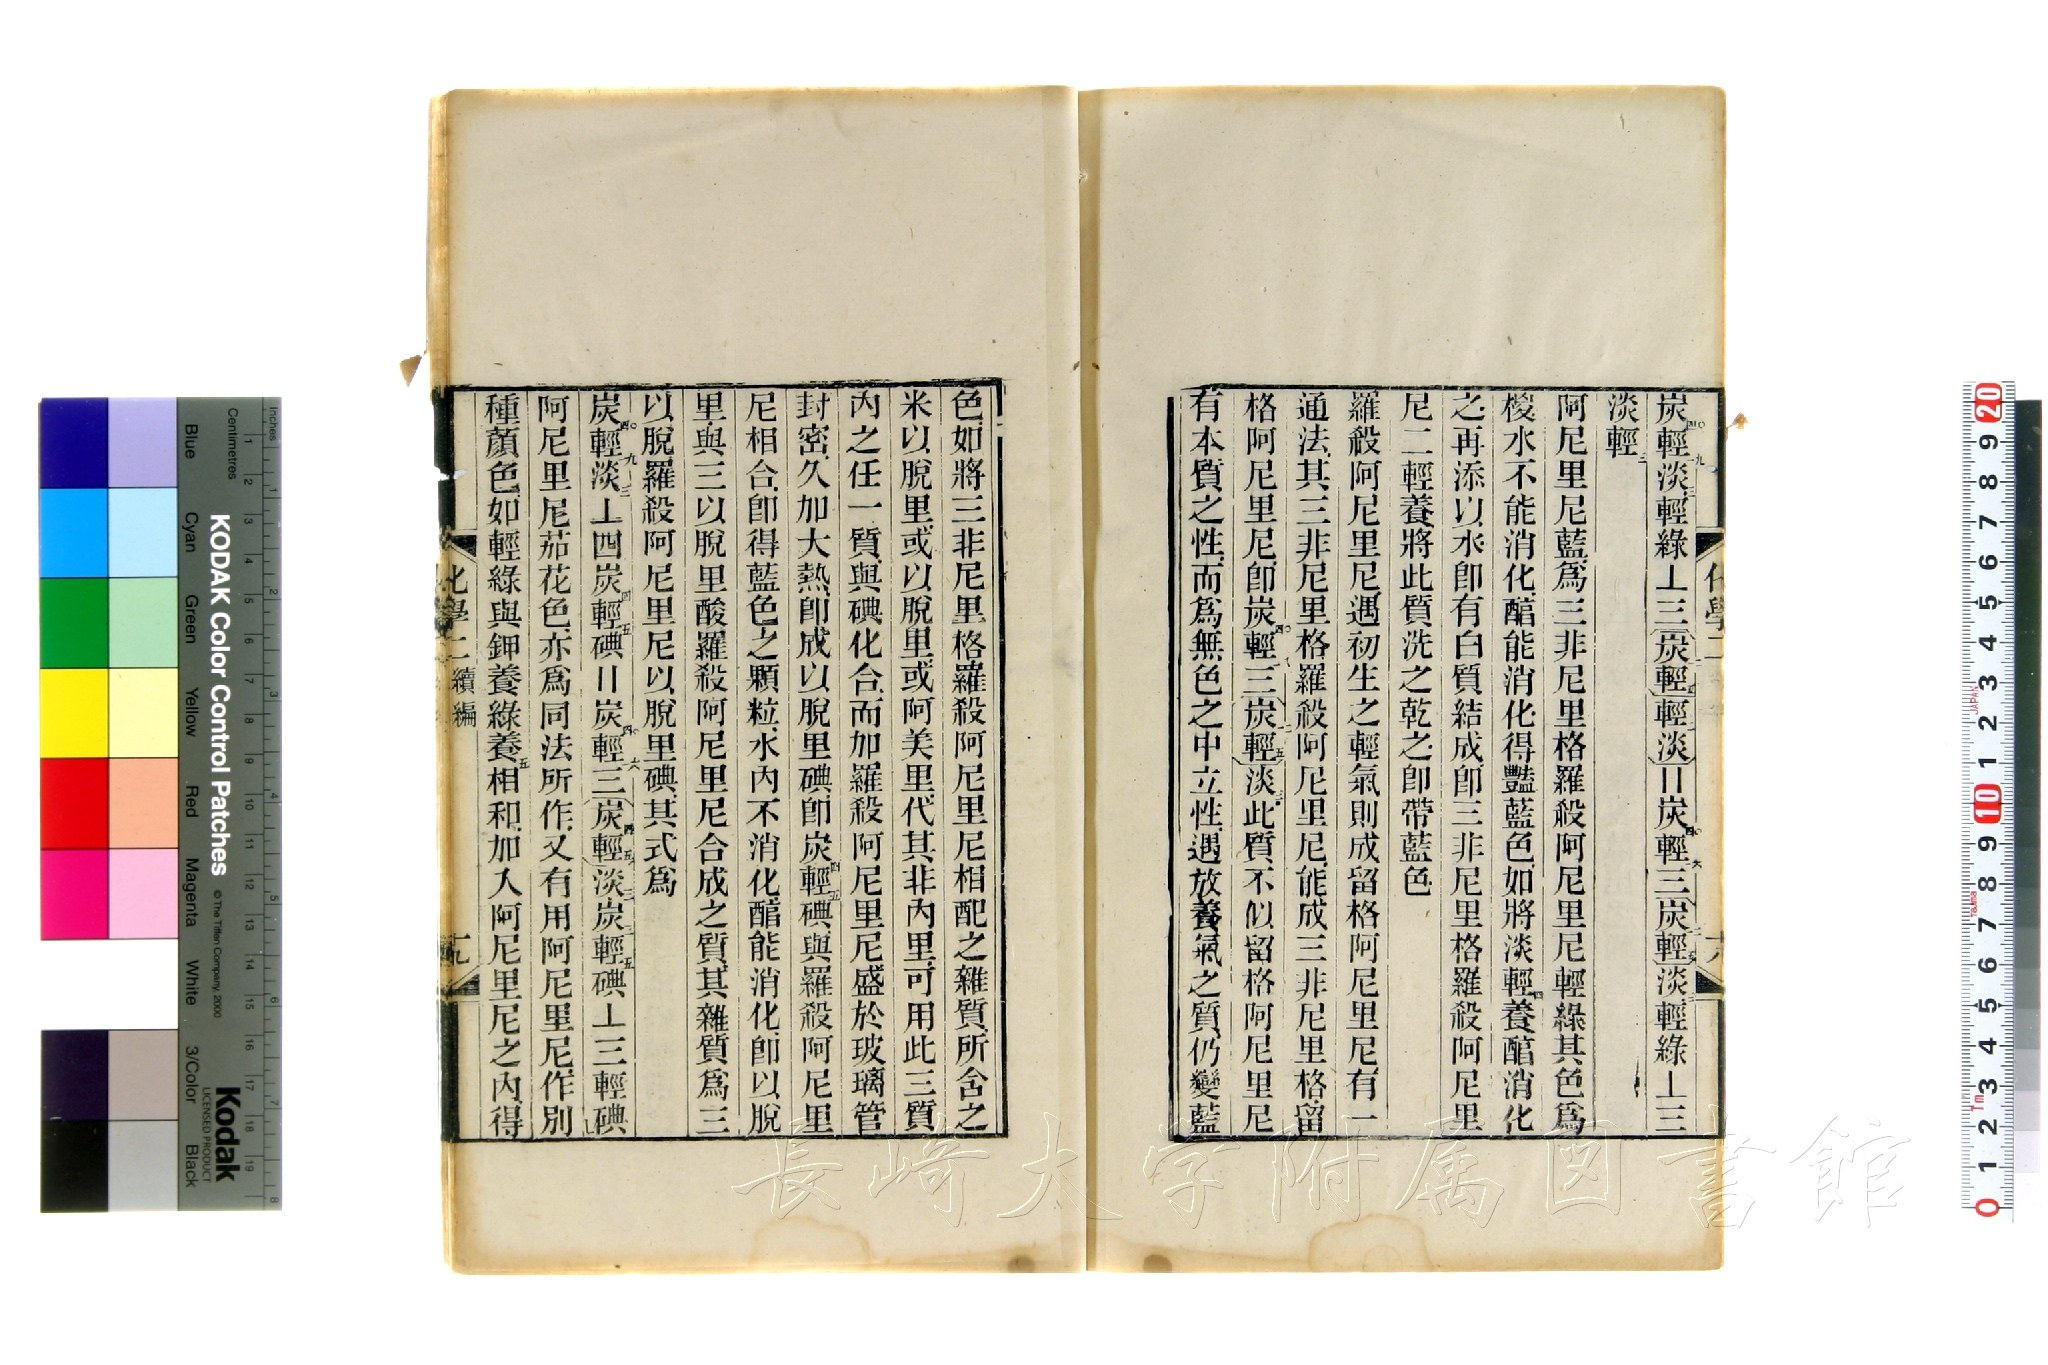 炭輕淡輕綠⊥三(炭輕)輕淡)=炭輕三炭輕)淡輕綠⊥三
淡輕三
阿尼里尼藍爲三非尼里格羅殺阿尼里尼輕綠其色爲
椶水不能消化醕能消化得豔藍色如將淡輕四養醕消化
之再添以水卽有白質結成卽三非尼里格羅殺阿尼里
尼二輕養將此質洗之乾之卽帶藍色
羅殺阿尼里尼遇初生之輕氣則成留格阿尼里尼有一
通法其三非尼里格羅殺阿尼里尼能成三非尼里格留
格阿尼里尼卽炭輕三炭輕)淡三此質不似留格阿尼里尼
有本質之性而爲無色之中立性遇放養氣之質仍變藍
化學二
十八
色如將三非尼里格羅殺阿尼里尼相配之雜質所含之
米以脫里或以脫里或阿美里代其非內里可用此三質
內之任一質與碘化合而加羅殺阿尼里尼盛於玻璃管
封密久加大熱卽成以脫里碘卽炭四輕五碘與羅殺阿尼里
尼相合卽得藍色之顆粒水內不消化醕能消化卽以脫
里與三以脫里酸羅殺阿尼里尼合成之質其雜質爲三
以脫羅殺阿尼里尼以脫里碘其式爲
炭四〇輕一九淡三⊥四炭四輕五碘=炭四〇輕一六三(炭四輕五)淡三炭四輕五碘⊥三輕碘
阿尼里尼茄花色亦爲同法所作又有用阿尼里尼作別
種顏色如輕綠與鉀養綠養五相和加入阿尼里尼之內得
化學二續編
十九
KODAK Color Control Patches
© The Tiffen Company, 2000
Kodak
LICENSED PRODUCT
Inches
Centimetres
Blue
Cyan
Green
Yellow
Red
Magenta
White
3/Color
Black
長崎大学附属図書館
JAPAN